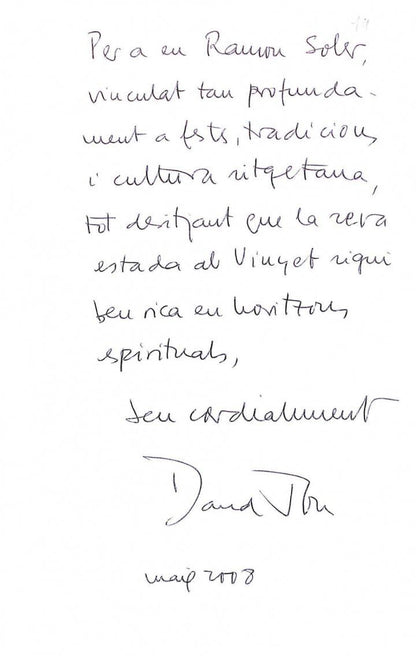 Per a en Ramon Soler,
vinculat tan profunda-
ment a fets, tradicions
i cultura sitgetana,
tot desitjant que la seva
estada al Vinyet sigui
ben rica en horitzons
espirituals,
ben cordialment
David Jou
maig 2008